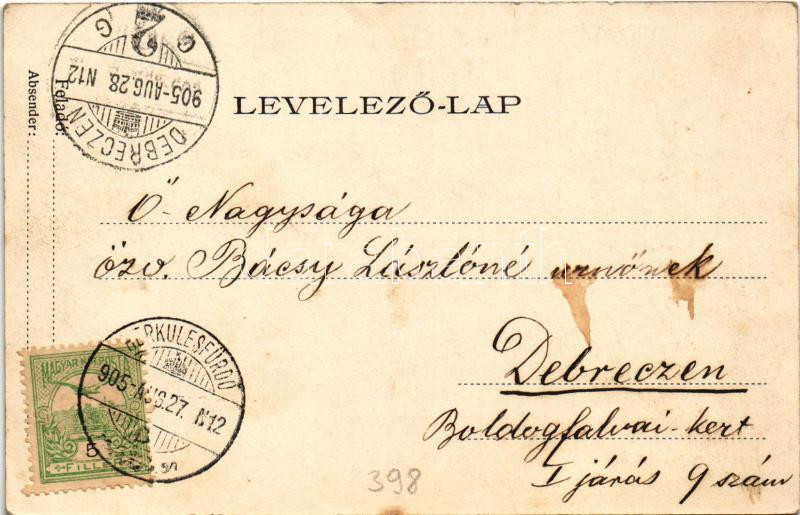 G 2 G
905-AUG.28. N12
DEBRECZEN
Feladó:
Absender:
LEVELEZŐ-LAP
Ő-Nagysága
özv. Bácsy Lászlóné urnőnek
Debreczen
Boldogfalvai-kert
I járás 9 szám
HERKULESFÜRDŐ
905-AUG.27. N12
MAGYAR KIR. POSTA
5
FILLÉR
398